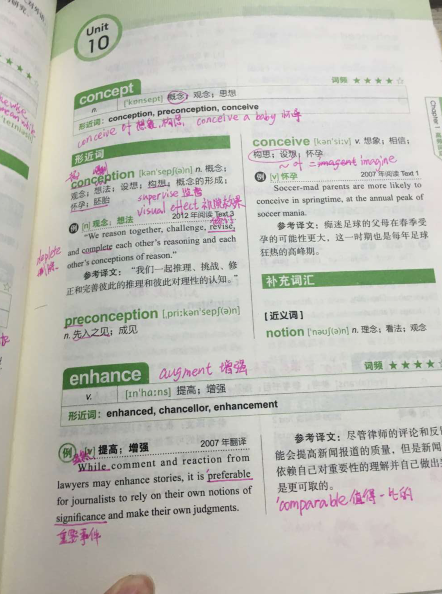 Unit
10
concept
词频 ★★★★☆
n. ['kɒnsept] 概念；观念；思想
形近词：conception, preconception, conceive
conceive of 想象，构思， conceive a baby 怀孕
形近词
conception [kən'sepʃ(ə)n] n. 概念；
观念；想法；设想；构想；概念的形成；
怀孕；胚胎
supervise 监督
visual effect 视觉效果
例 [n] 观念；想法 2012 年阅读 Text 3
"We reason together, challenge, revise,
and complete each other's reasoning and each
other's conceptions of reason."
参考译文："我们一起推理、挑战、修
正和完善彼此的推理和彼此对理性的认知。"
preconception [ˌpriːkən'sepʃ(ə)n]
n. 先入之见；成见
conceive [kən'siːv] v. 想象；相信；
构思；设想；怀孕
~ of = imagent imagine
例 [v] 怀孕 2007 年阅读 Text 1
Soccer-mad parents are more likely to
conceive in springtime, at the annual peak of
soccer mania.
参考译文：痴迷足球的父母在春季受
孕的可能性更大，这一时期也是每年足球
狂热的高峰期。
补充词汇
[近义词]
notion ['nəʊʃ(ə)n] n. 理念；看法；观念
enhance
augment 增强
词频 ★★★★
v. [ɪn'hɑːns] 提高；增强
形近词：enhanced, chancellor, enhancement
例 [v] 提高；增强 2007 年翻译
While comment and reaction from
lawyers may enhance stories, it is preferable
for journalists to rely on their own notions of
significance and make their own judgments.
重要事件
参考译文：尽管律师的评论和反
能会提高新闻报道的质量，但是新闻
依赖自己对重要性的理解并自己做出
是更可取的。
comparable 值得一比的